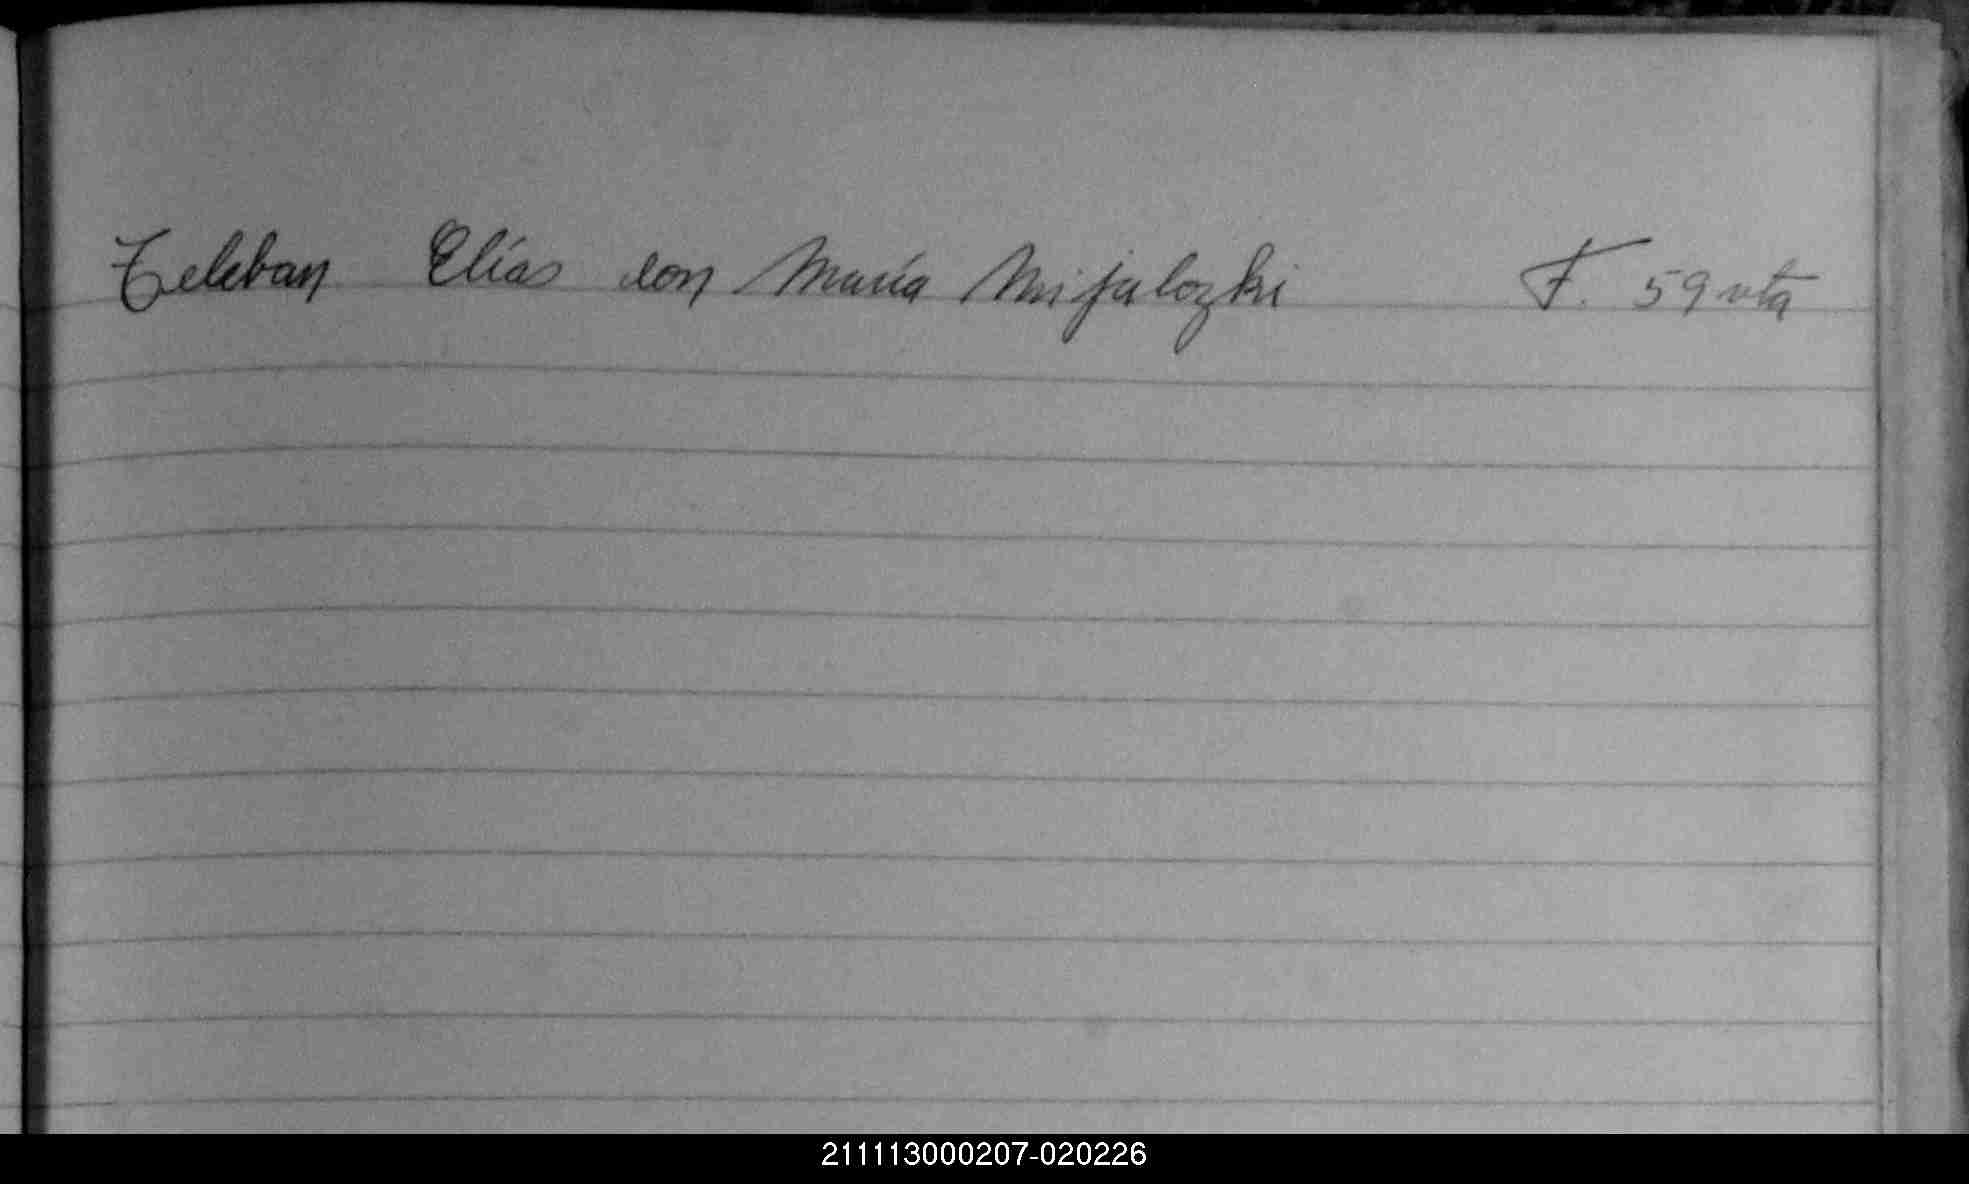 Teleban Elías con María Mijalozki F. 59 vta
211113000207-020226